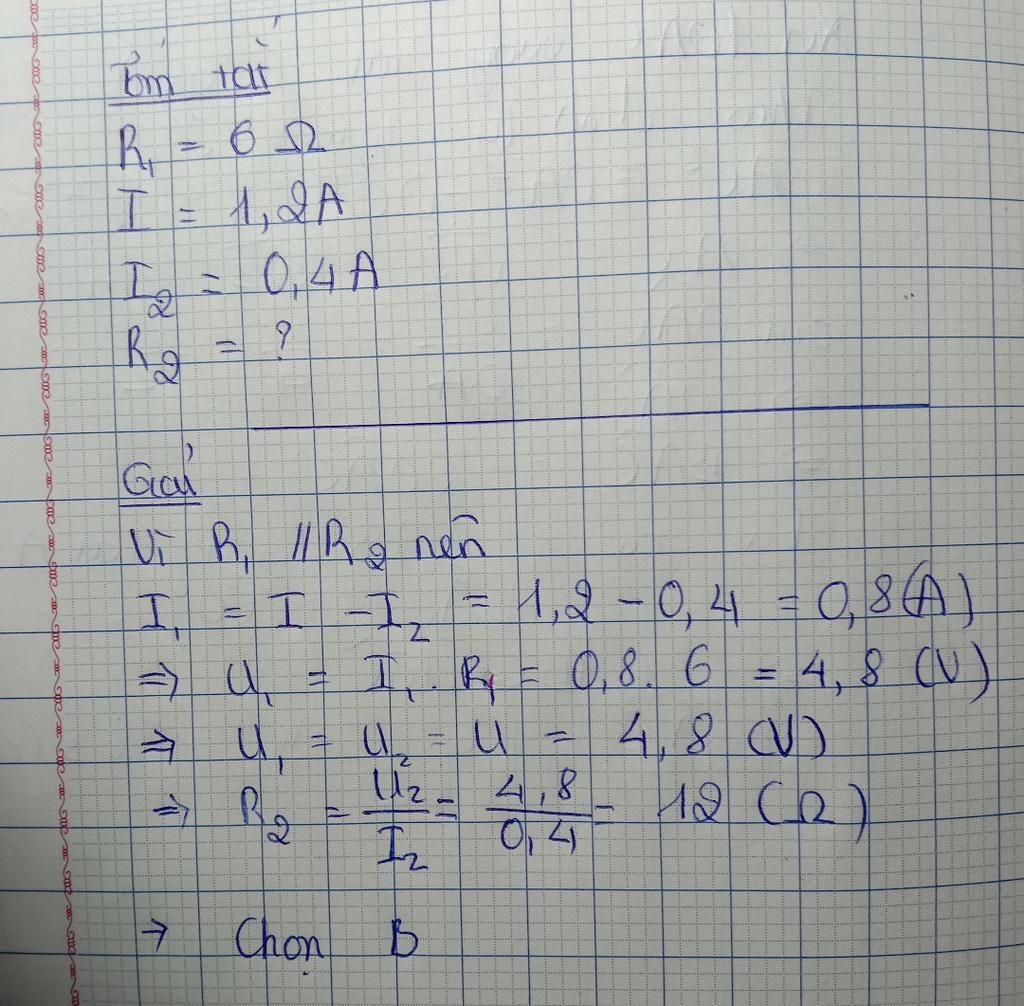 Tóm tắt
R₁ = 6 Ω
I = 1,2A
I₂ = 0,4A
R₂ = ?
Giải
Vì R₁ // R₂ nên
I₁ = I - I₂ = 1,2 - 0,4 = 0,8(A)
⇒ U₁ = I₁. R₁ = 0,8. 6 = 4,8 (V)
⇒ U₁ = U₂ = U = 4,8 (V)
⇒ R₂ = U₂/I₂ = 4,8/0,4 = 12 (Ω)
→ Chọn B